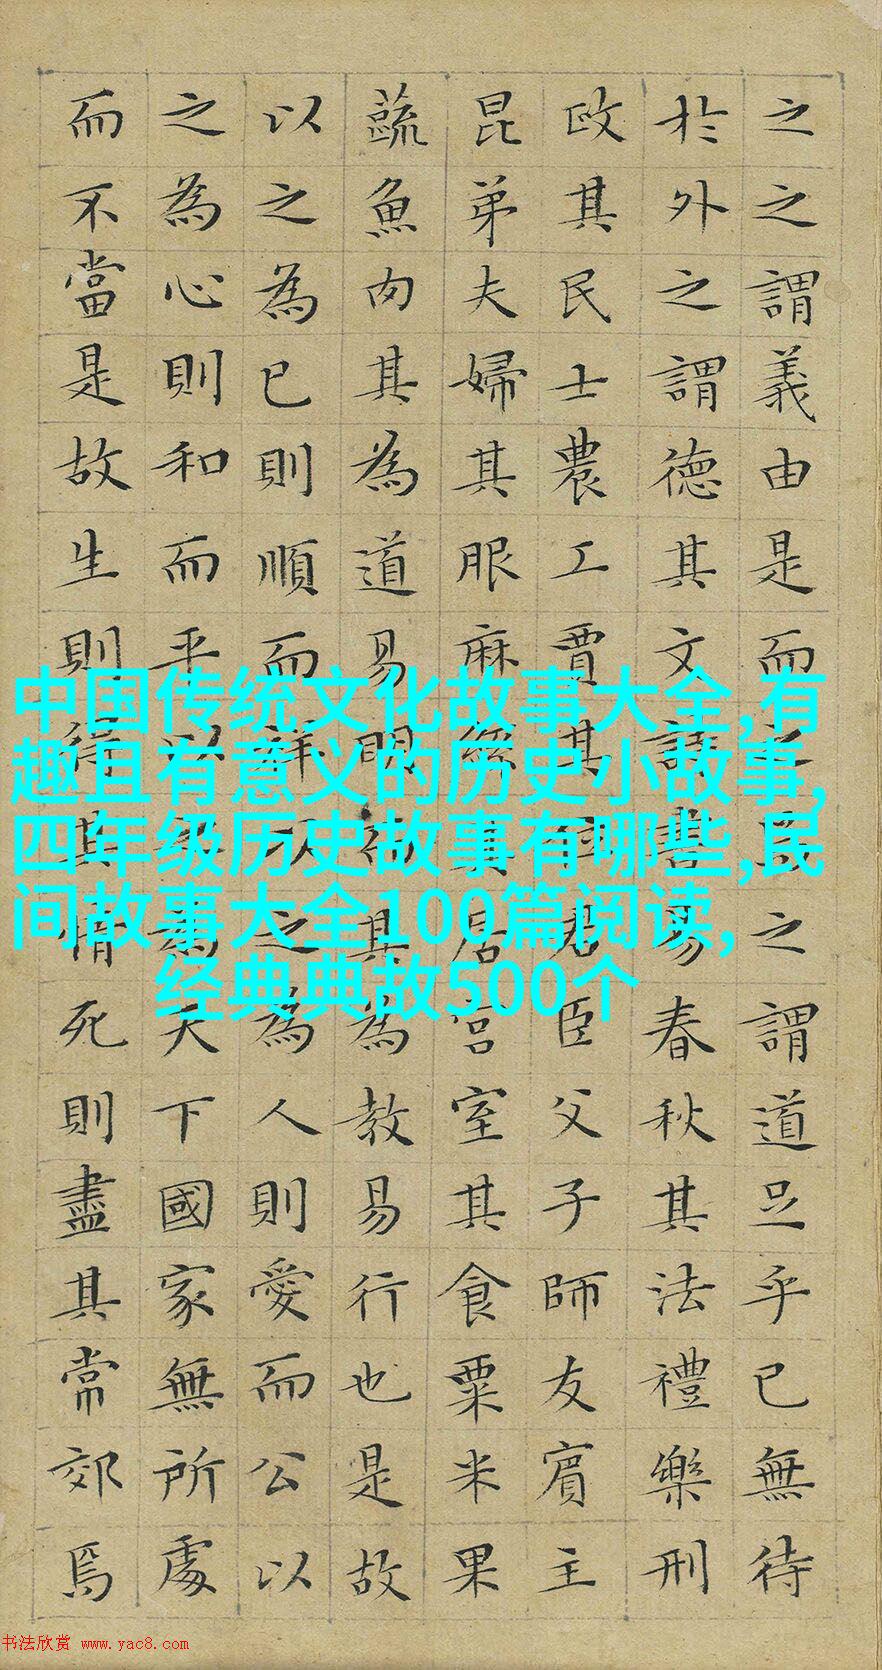 之之謂義由是而之焉之謂道足乎已無待
於外之謂德其文詩書易春秋其法禮樂刑
政其民士農工賈其位君臣父子師友賓主
昆弟夫婦其服麻絲其居宮室其食粟米果
蔬魚肉其為道易明而其為教易行也是故
以之為已則順而祥以之為人則愛而公以
之為心則和而平以之為天下國家無所處
而不當是故生則得其情死則盡其常郊焉
中国传统文化故事大全,有
趣且有意义的历史小故事,
四年级历史故事有哪些,民
间故事大全100篇阅读,
经典典故500个
书法欣赏 www.yac8.com